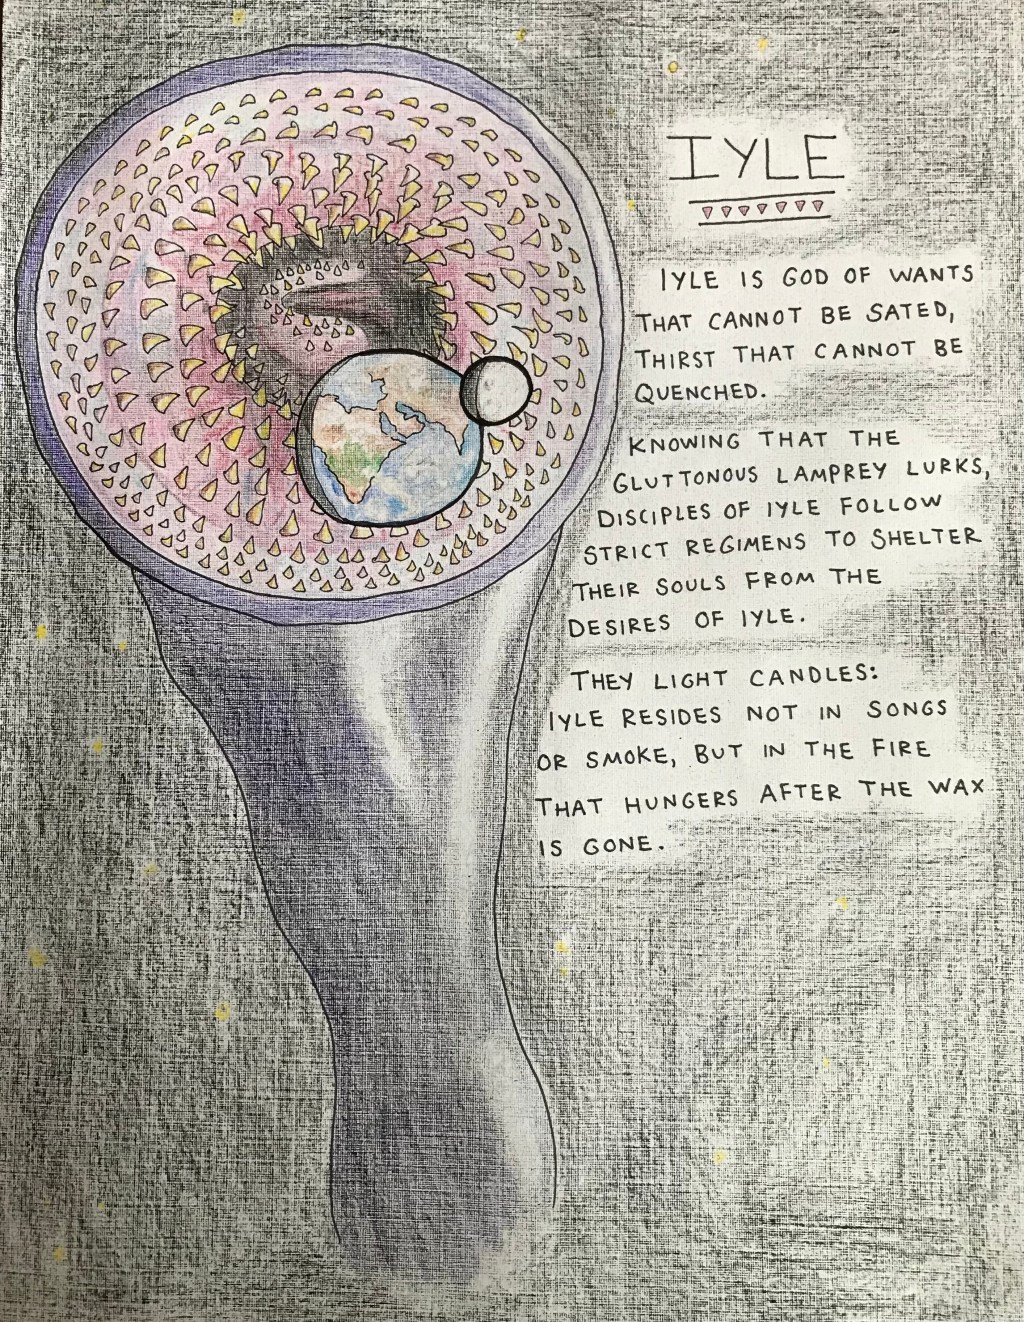 IYLE
IYLE IS GOD OF WANTS
THAT CANNOT BE SATED,
THIRST THAT CANNOT BE
QUENCHED.
KNOWING THAT THE
GLUTTONOUS LAMPREY LURKS,
DISCIPLES OF IYLE FOLLOW
STRICT REGIMENS TO SHELTER
THEIR SOULS FROM THE
DESIRES OF IYLE.
THEY LIGHT CANDLES:
IYLE RESIDES NOT IN SONGS
OR SMOKE, BUT IN THE FIRE
THAT HUNGERS AFTER THE WAX
IS GONE.